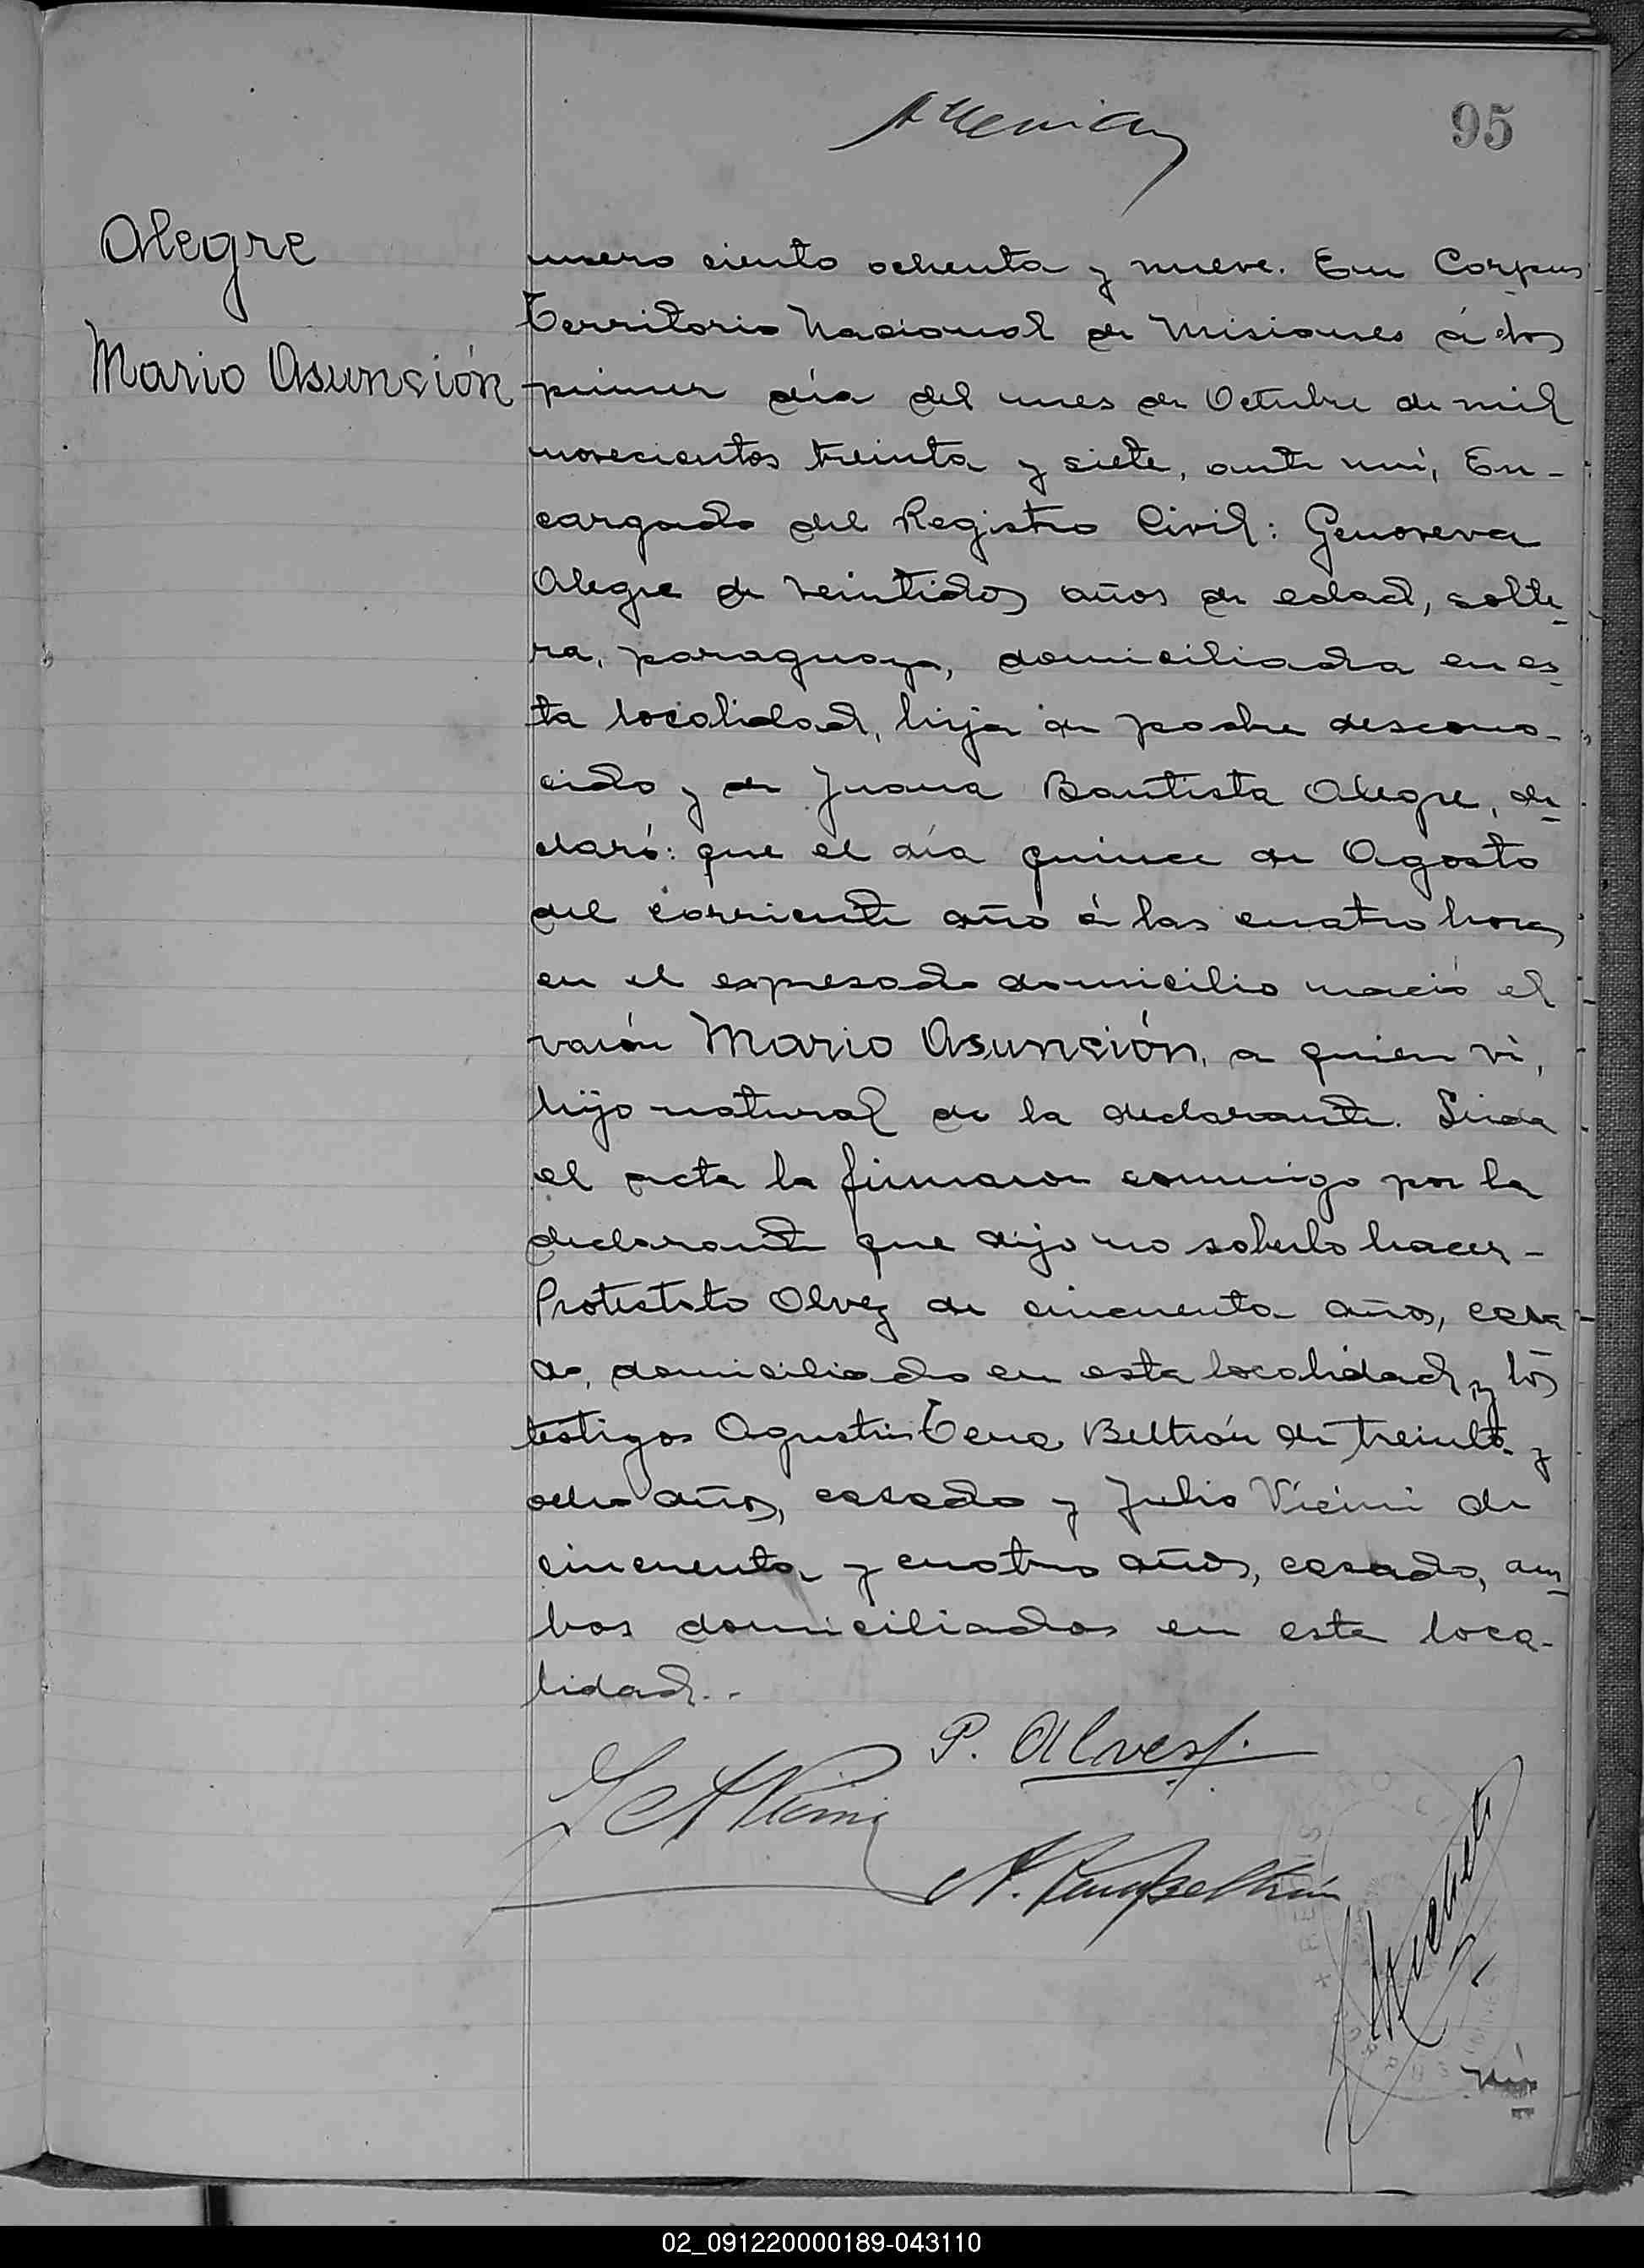 95
Alegre
Mario Asunción
mero ciento ochenta y nueve. En Corpus
Territorio Nacional de Misiones á los
primer día del mes de Octubre de mil
novecientos treinta y siete, ante mi, En-
cargado del Registro Civil: Genoveva
Alegre de veintidos años de edad, solte-
ra, paraguaya, domiciliada en es-
ta localidad, hija de padre descono-
cido y de Juana Bautista Alegre, de-
claró: que el día quince de Agosto
del corriente año á las cuatro horas
en el expresado domicilio nació el
varón Mario Asunción, a quien vi,
hijo natural de la declarante. Leida
el acta la firmaron conmigo por la
declarante que dijo no saberlo hacer-
Protestato Olvez de cincuenta años, casa
do, domiciliado en esta localidad y los
testigos Agustin Tena Beltrán de treinta y
ocho años, casado y Julio Vicini de
cincuenta y cuatro años, casado, am-
bos domiciliados en esta loca-
lidad..
P. Alvez
A. Tena Beltrán
02_091220000189-043110